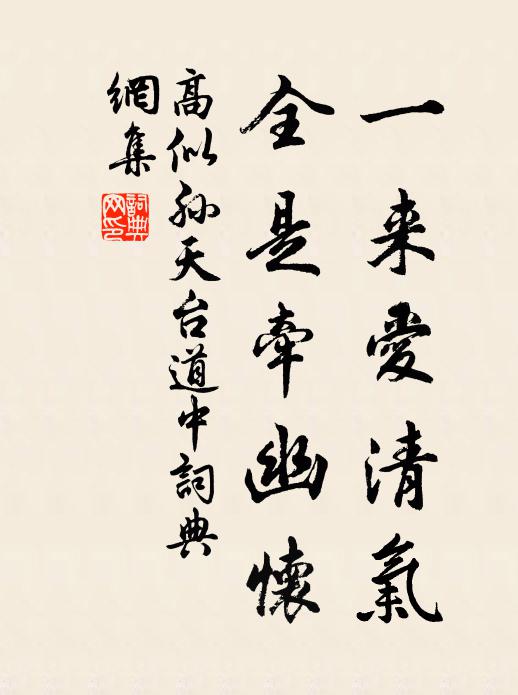 一来愛清氣
全是牽幽懷
高似孙天台道中詞典
網集
詞典
网印